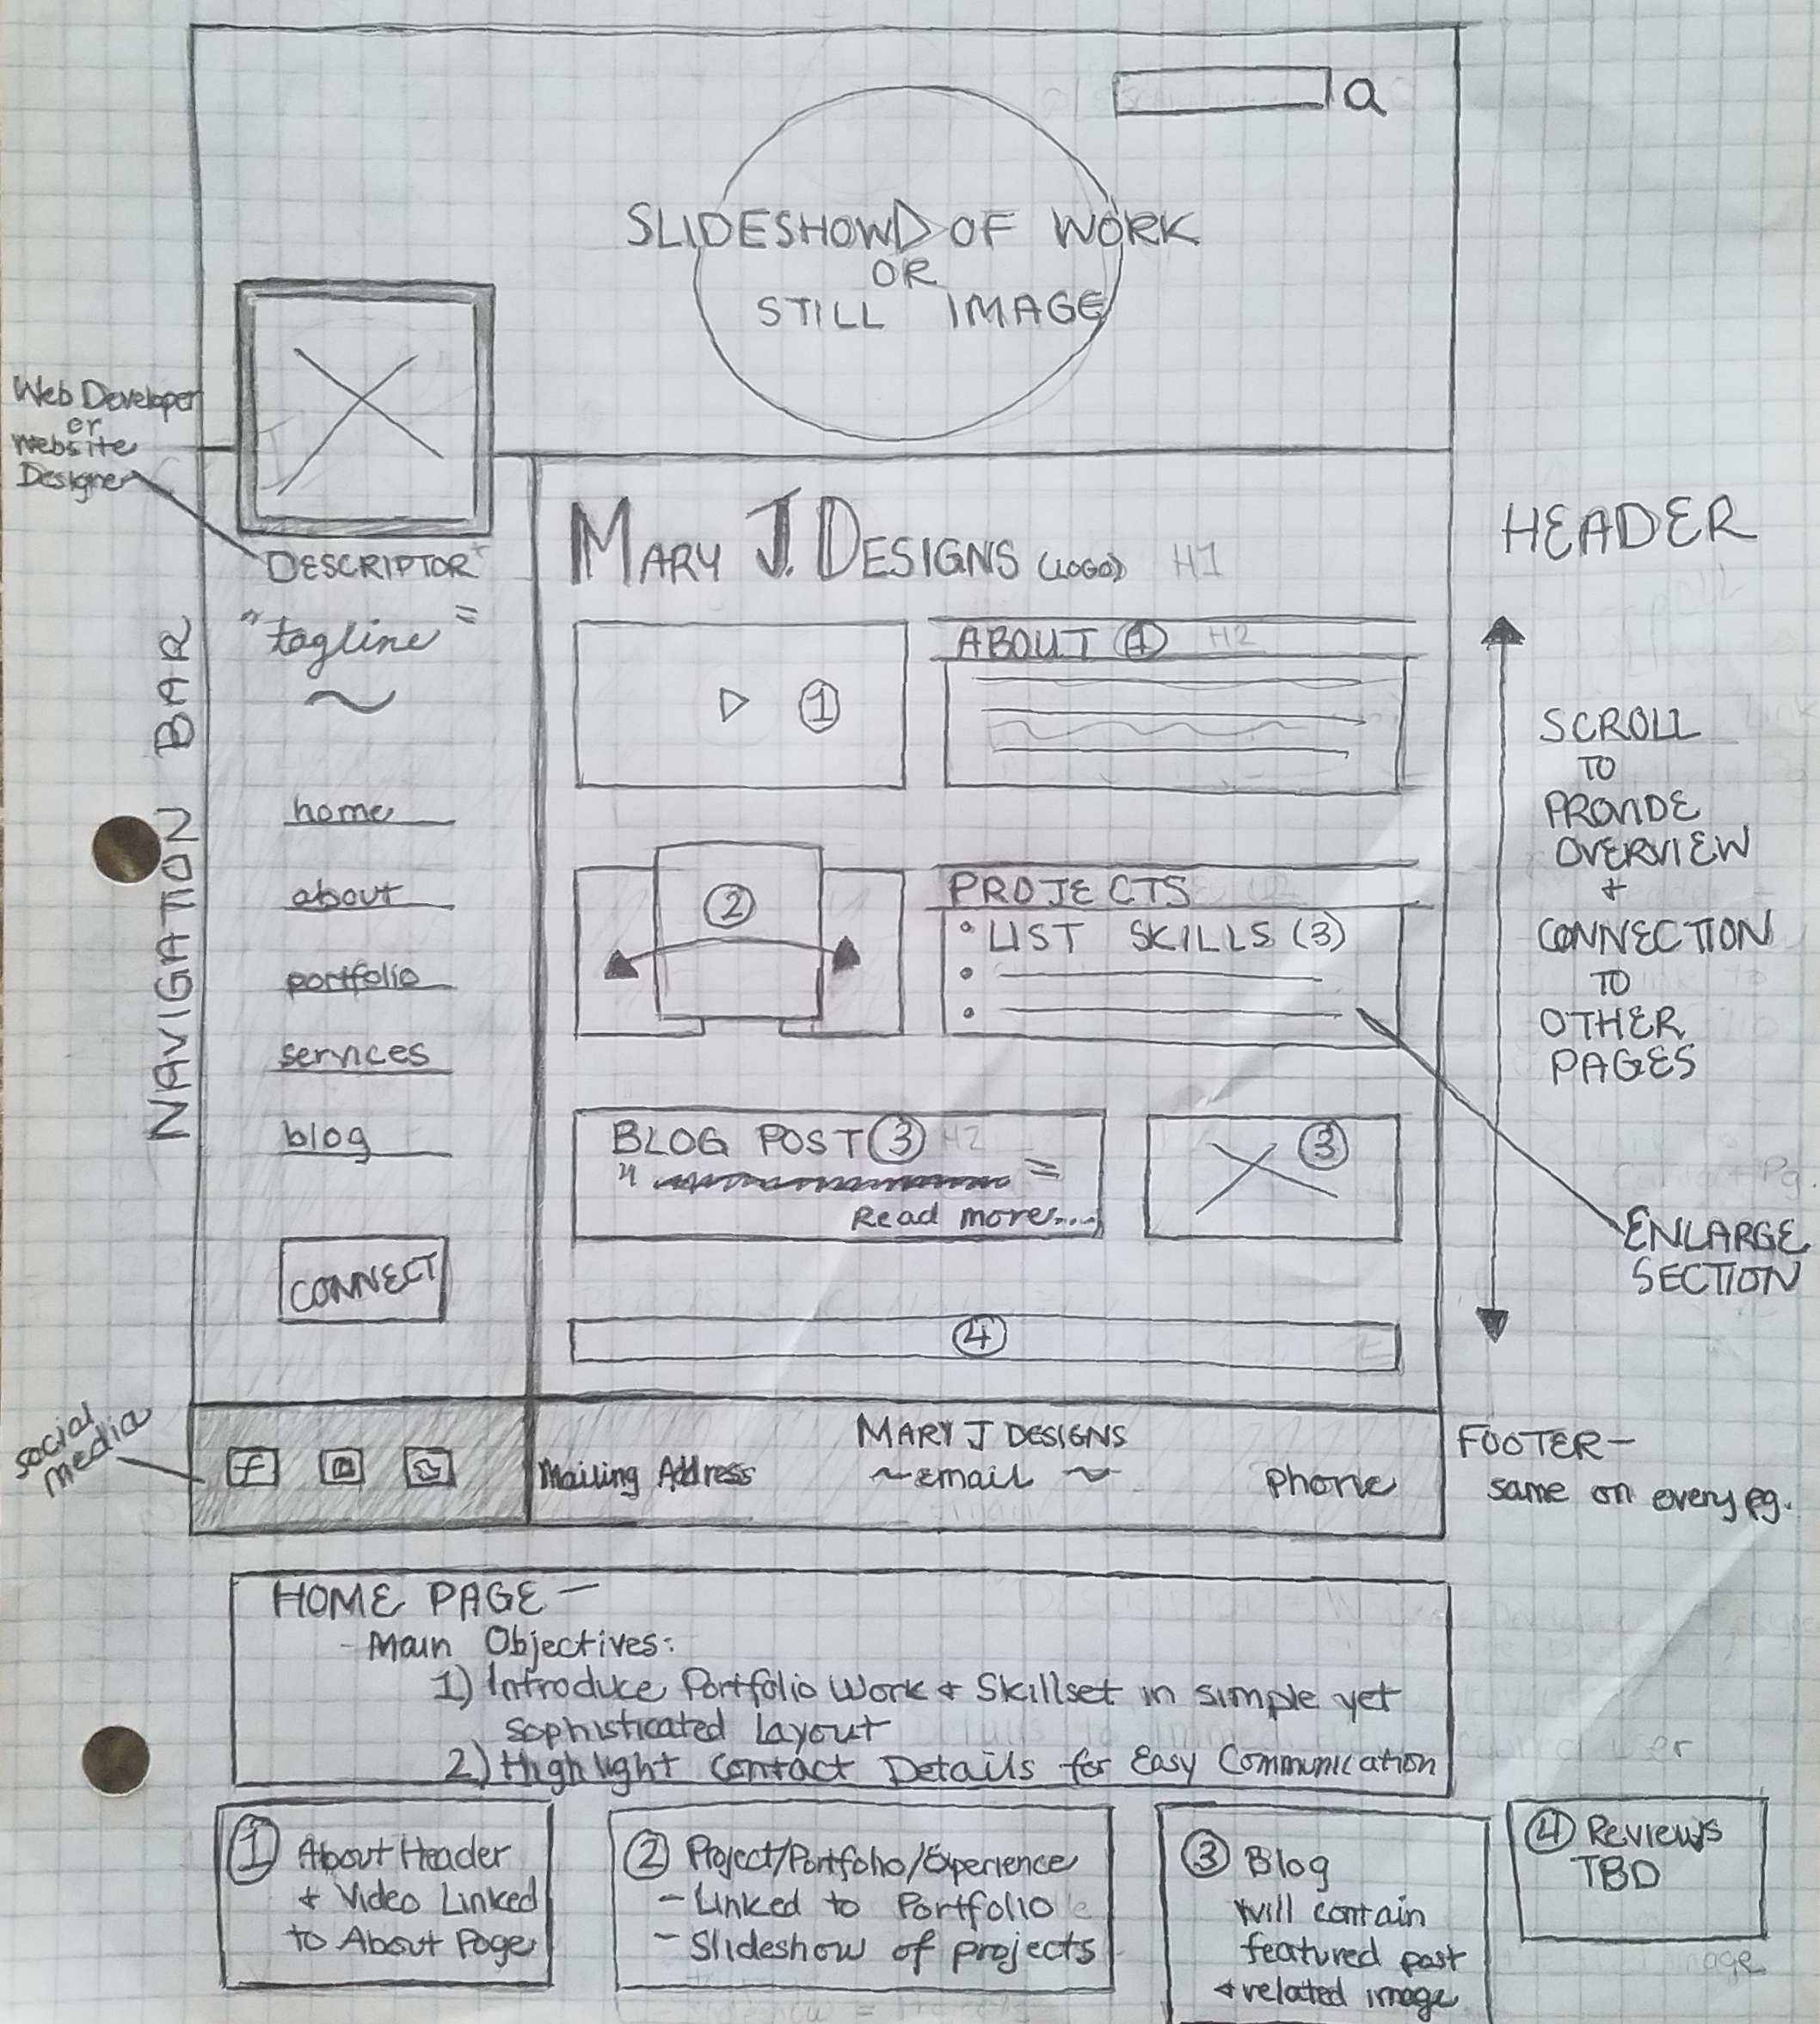 a
SLIDESHOW OF WORK
OR
STILL IMAGE
Web Developer
or
Website
Designer
DESCRIPTOR
"tagline"
NAVIGATION BAR
home
about
portfolio
services
blog
CONNECT
MARY J. DESIGNS (LOGO) H1
1
ABOUT 1 H2
2
PROJECTS H2
• LIST SKILLS (3)
•
•
BLOG POST 3 H2
Read more....
3
4
HEADER
SCROLL
TO
PROVIDE
OVERVIEW
+
CONNECTION
TO
OTHER
PAGES
ENLARGE
SECTION
social
media
f
MARY J DESIGNS
Mailing Address ~email~ Phone
FOOTER-
same on every pg.
HOME PAGE -
- Main Objectives:
1) Introduce Portfolio Work + Skillset in simple yet
sophisticated Layout
2) Highlight Contact Details for Easy Communication
1 About Header
+ Video Linked
to About Page
2 Project/Portfolio/Experience
- Linked to Portfolio
- Slideshow of projects
3 Blog
will contain
featured post
+ related image
4 Reviews
TBD